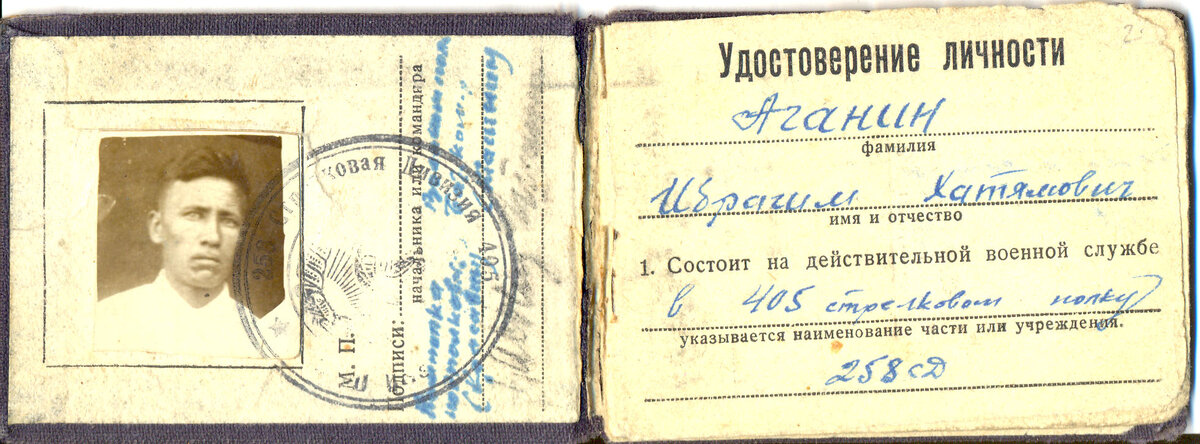 258 Стрелковая Дивизия 405
М. П.
Подписи:
начальника или командира
2.
Удостоверение личности
Аганин
фамилия
Ибрагим Хатямович
имя и отчество
1. Состоит на действительной военной службе
в 405 стрелковом полку
указывается наименование части или учреждения.
258 сд